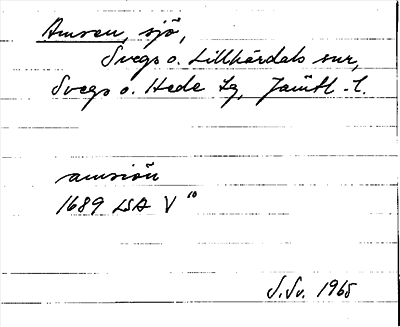 Amsen, sjö,
Svegs o. Lillhärdals snr,
Svegs o. Hede tg, Jämtl. l.
amsiön
1689 LSA V"
S.Sv. 1965